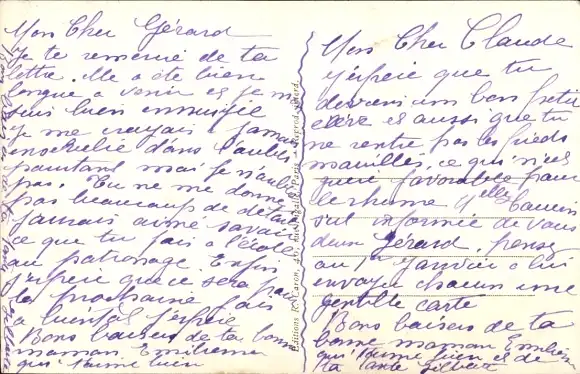 Mon Cher Gérard
Je te remercie de ta
lettre. Elle a été bien
longue a venir et je me
suis bien ennuyée
je me croyais jamais
ensevelie dans l'oubli
pourtant moi je n'oublie
pas. Tu ne me donne
pas beaucoup de détails
j'aurais aimé savoir
ce que tu fais a l'école
au patronage. Enfin
j'espère que ce sera pour
la prochaine fois
a bientôt j'espère
Bons baisers de ta bonne
maman Emilienne
qui t'aime bien
Bons baisers de la tante
Mon Cher Claude
j'espère que tu
deviens un bon petit
élève et aussi que tu
ne rentre pas les pieds
mouillés, ce qui n'est
guère favorable pour
le rhume. Melle
s'est informée de vous
deux Gérard, pensez
au 1er Janvier a lui
envoyer chacun une
gentille carte
Bons baisers de ta
bonne maman Emilienne
qui t'aime bien et de
ta tante Gilberte